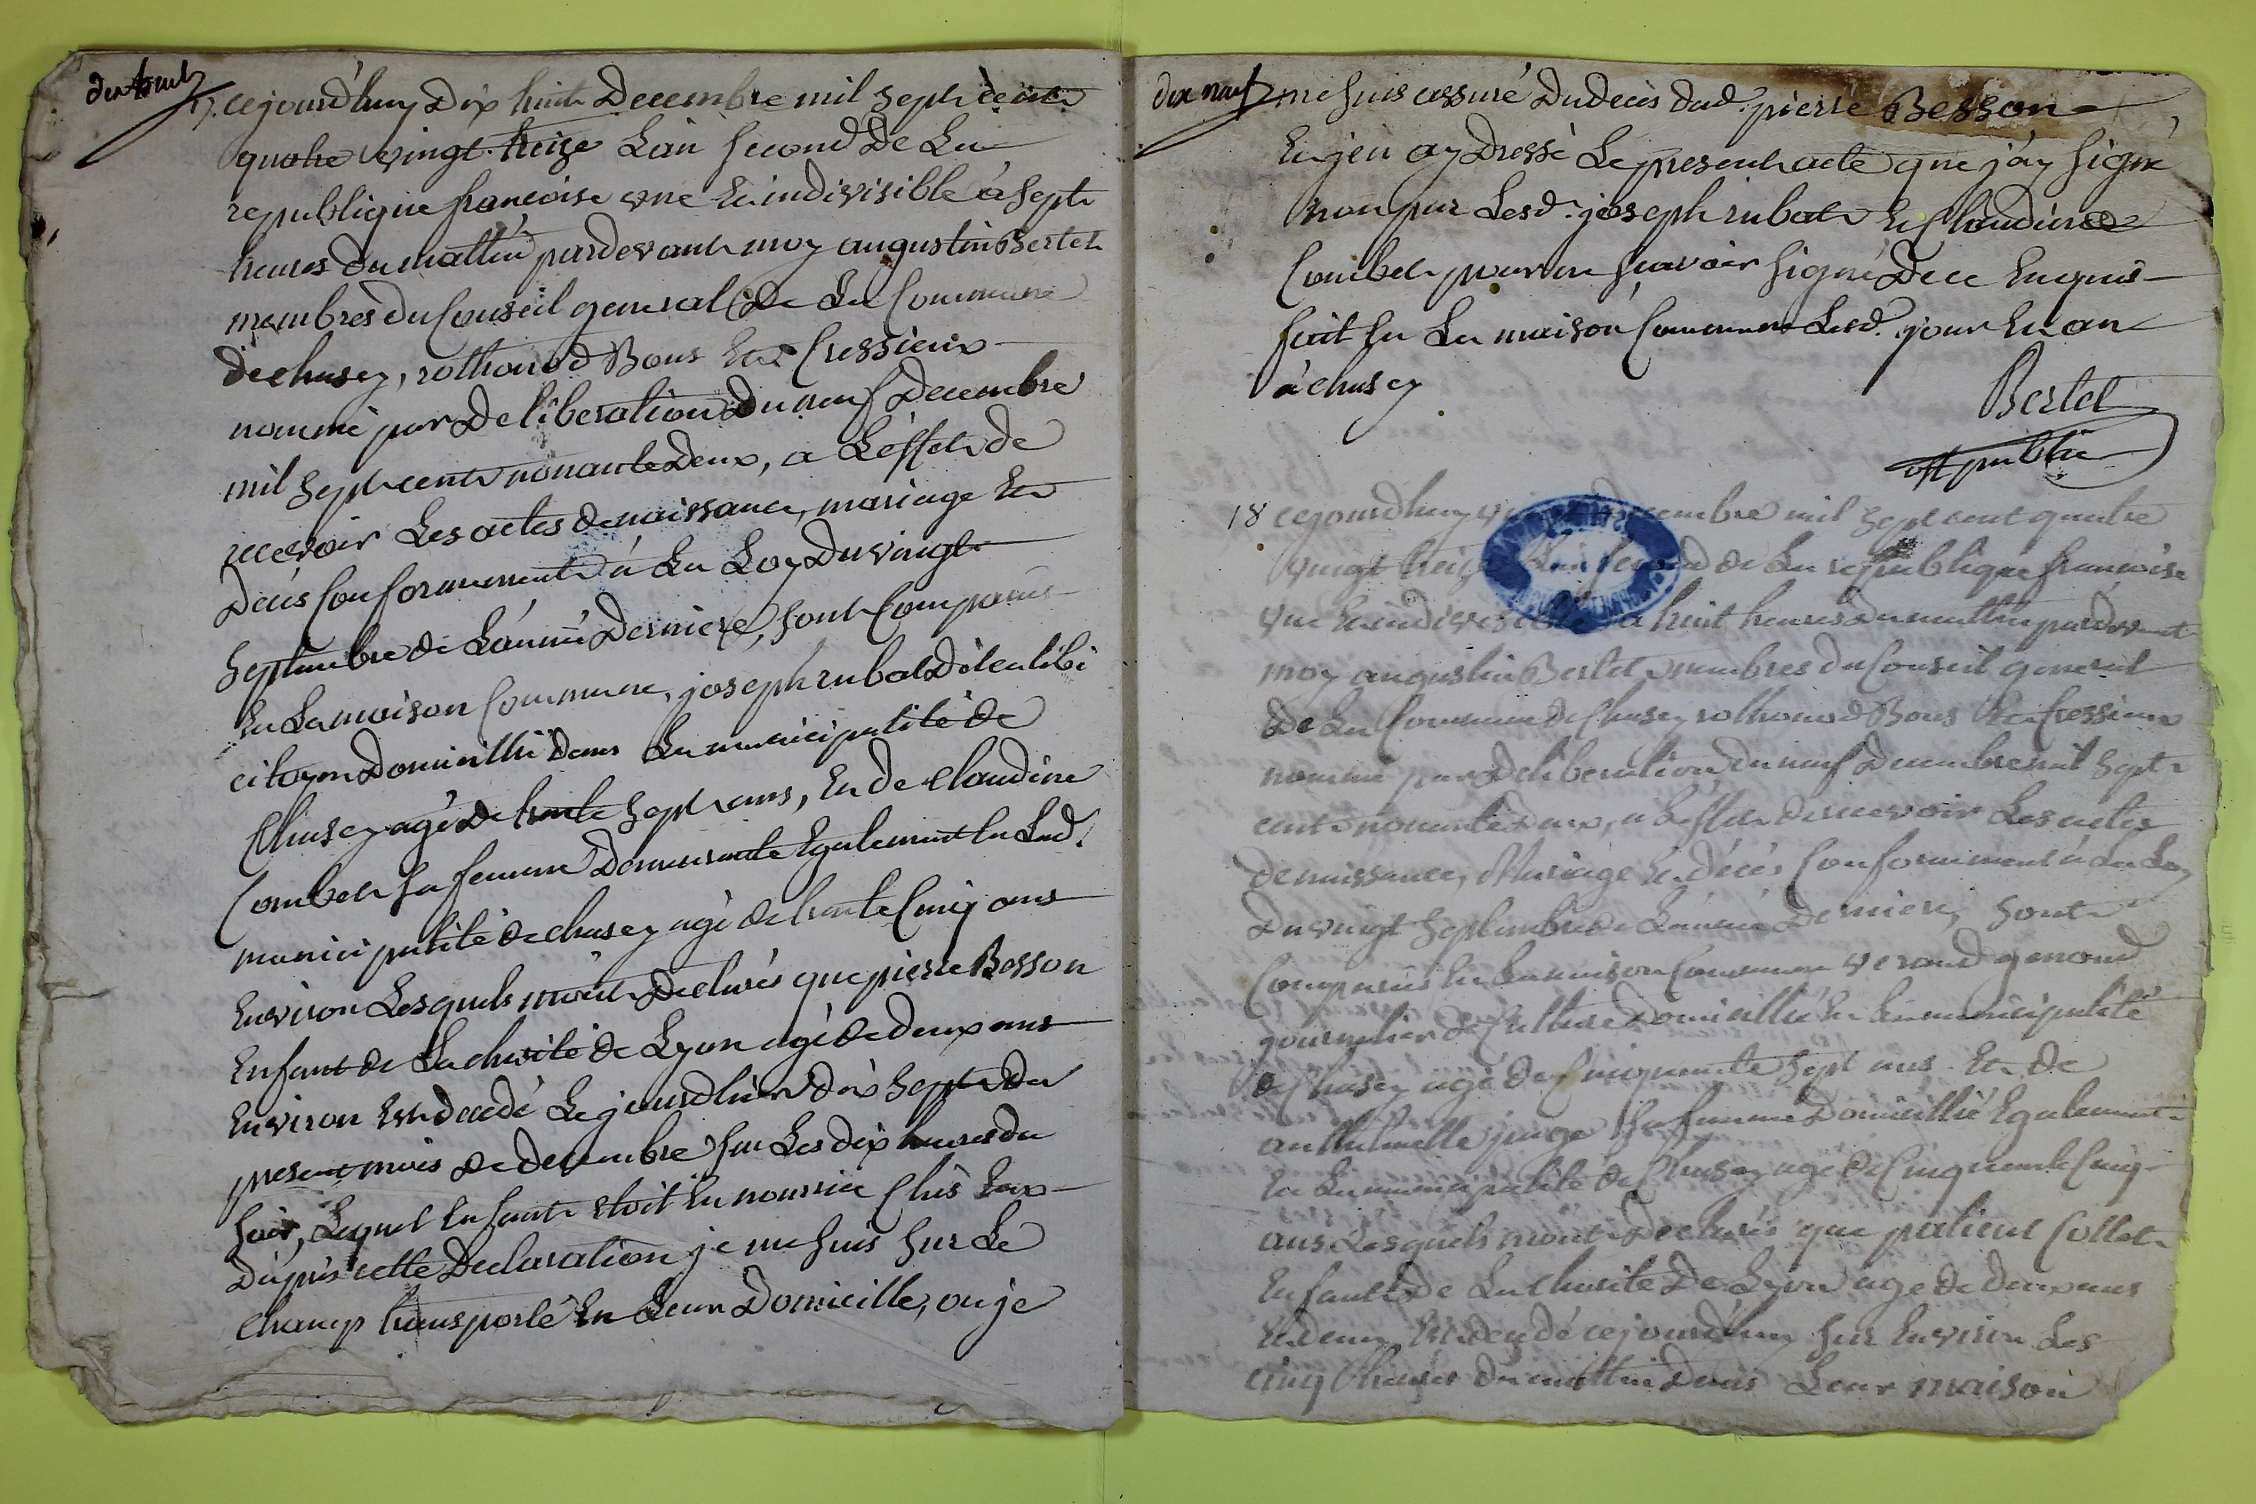 dix huit
17. cejourd'huy dix huit decembre mil sept cent
quatre vingt treize L'an second De La
republique francoise une et indivisible à sept
heures du mattin pardevant moy augustin Bertet
membres du Conseil general De La Commune
de chasey, rothonod Bons et Cressieux
nommé par Deliberation Du neuf Decembre
mil sept cent nonante Deux, a L'effet de
recevoir Les actes de naissance, mariage et
Décés Conformement à La Loy Du vingt
septembre de L'année Derniere, sont Comparus
En La maison Commune, joseph rubat
citoyen Domicillié dans La municipalité de
Chasey agé De trente sept ans, et de Claudine
Combet sa femme Demeurante Egalement en Lad.
municipalité de chasey agé de trente Cinq ans
Environ Lesquels m'ont Declarés que pierre Besson
Enfant de La charité de Lyon agé de deux ans
Environ est decedé Le jourd'hier dix sept du
present mois de decembre sur Les dix heures du
soir, Lequel Enfant etoit En nourrice Chés Eux
D'après cette Declaration je me suis sur Le
champ transporté en Leur Domicille, ou je
dix neuf
me suis assuré Du decés dud. pierre Besson
Et j'en ay Dressé Le present acte que j'ay signé
non par Lesd. joseph rubat et Claudine
Combet pour ne sçavoir signé De ce Enquis
fait En La maison Commune Lesd. jour et an
à chasey
Bertet
off public
18 cejourdhuy decembre mil sept cent quatre
vingt treize L'an second de La republique francoise
une et indivisible a huit heures du mattin pardevant
moy augustin Bertet membres du Conseil general
De La Commune de Chasey rothonod Bons et Cressieux
nommé par Deliberation du neuf Decembre mil sept
cent nonante deux, a L'effet de recevoir Les actes
de naissance, Mariage et décés Conformement à La Loy
Du vingt septembre de L'année Derniere, sont
Comparus en La maison Commune genoud
journalier de Culture Domicillié en La municipalité
de Chasey agé de Cinquante sept ans et de
anthelmette juge sa femme Domicillié Egalement
En La municipalité de Chasey agé de Cinquante Cinq
ans Lesquels m'ont Declarés que patient Collet
Enfant de La Charité De Lyon agé de deux ans
et demy est decedé cejourd'huy sur Environ Les
cinq heures du mattin Dans Leur maison